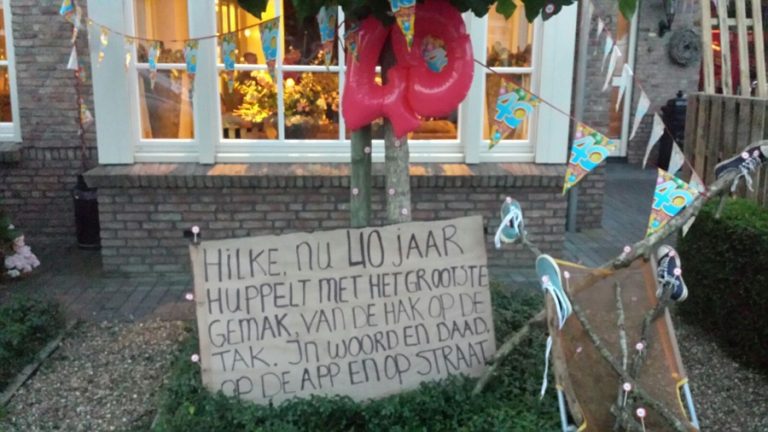 40
40
40
40
40
HILKE, NU 40 JAAR
HUPPELT MET HET GROOTSTE
GEMAK, VAN DE HAK OP DE
TAK. IN WOORD EN DAAD,
OP DE APP EN OP STRAAT